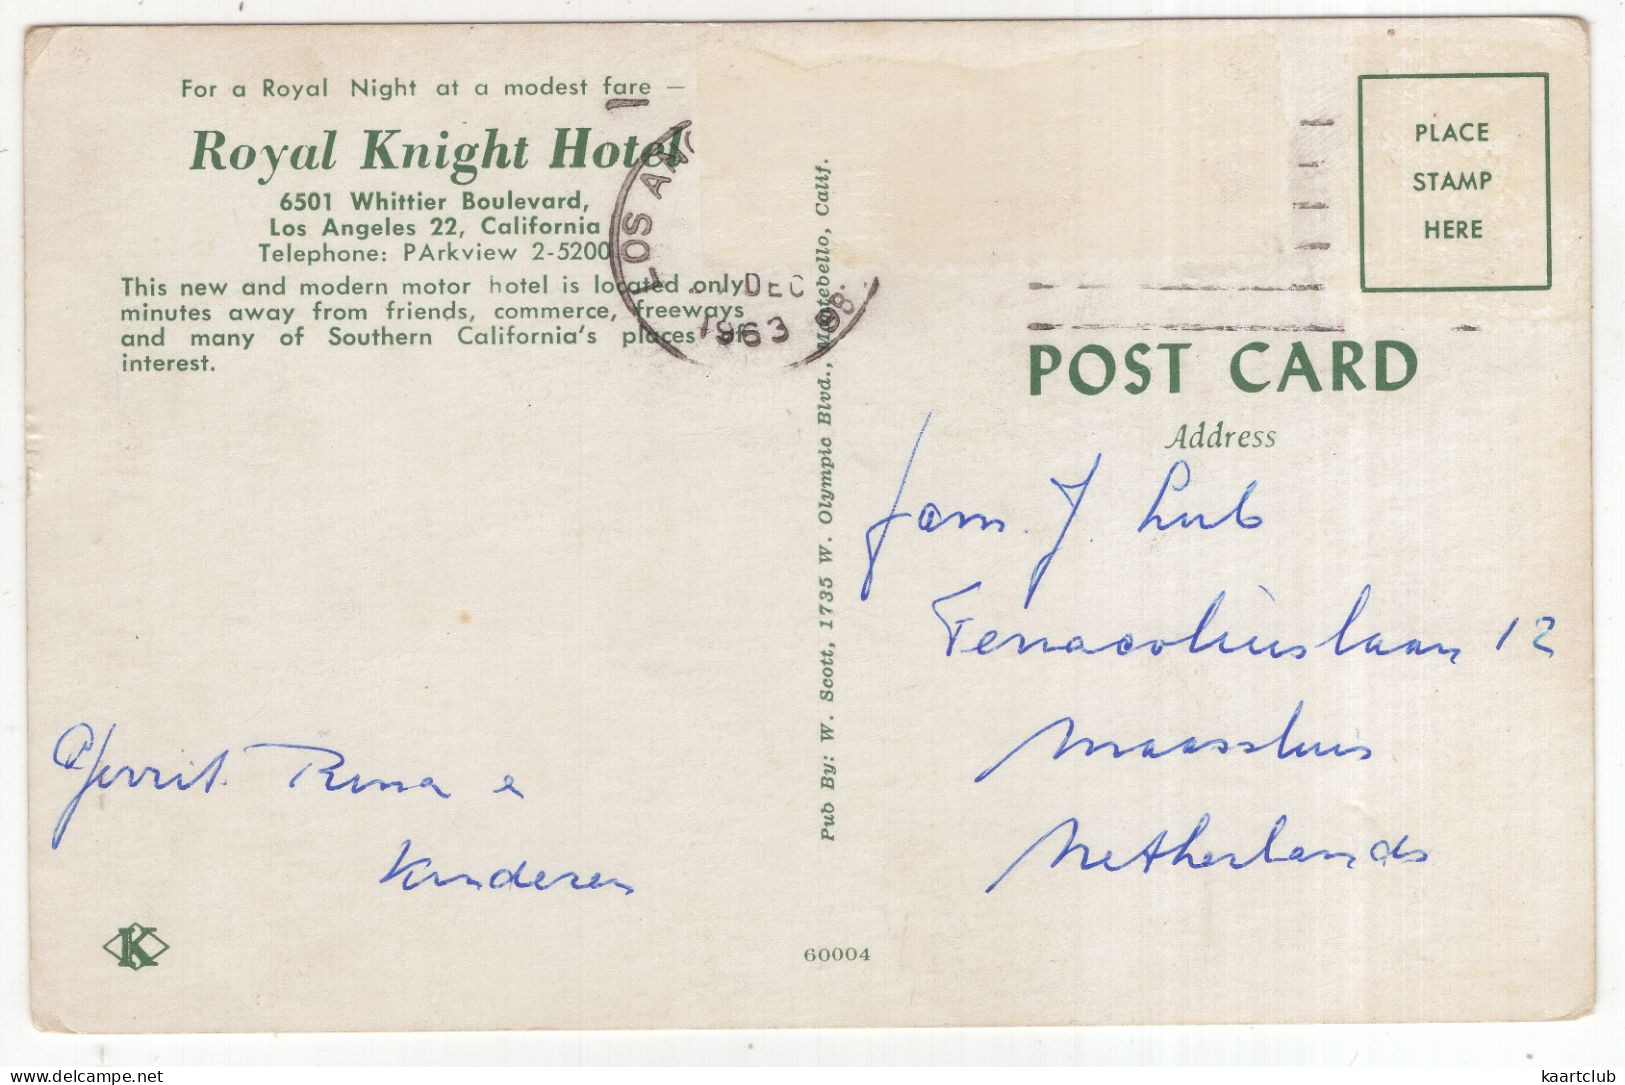 For a Royal Night at a modest fare —
Royal Knight Hotel
6501 Whittier Boulevard,
Los Angeles 22, California
Telephone: PArkview 2-5200
This new and modern motor hotel is located only
minutes away from friends, commerce, freeways
and many of Southern California's places of
interest.
LOS AN
DEC
1963
Pub By: W. Scott, 1735 W. Olympic Blvd., Montebello, Calif.
PLACE
STAMP
HERE
POST CARD
Address
fam. J. Lub
Fenacoliuslaan 12
Maassluis
Netherlands
Gerrit. Rina e
Kinderen
K
60004
www.delcampe.net
kaartclub